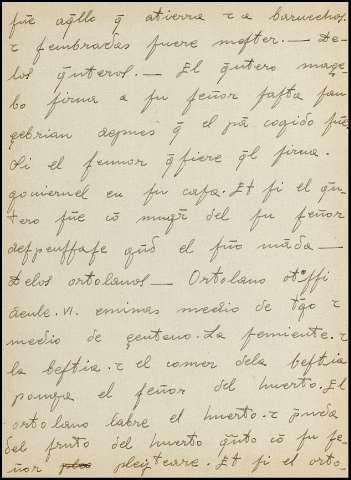 fūe aq̄llo q̄ atierra τ a baruechos.
τ sembradas fuere mester. — De-
los q̄nteros. — El q̄ntero māçe-
bo sirua a su señor fasta san
çebrian depues q̄ el pā cogido fūe.
Si el sennor q̄siere q̄l sirua.
gouiernel en su casa. Et si el q̄n-
tero fūe cō muḡr del su señor
despenssase q̄nd el fūo māda —
Delos ortolanos — Ortolano otossi
deule .VI. eminas medio de t̄go τ
medio de çenteno. La semiente. τ
la bestia. τ el comer dela bestia
ponga el señor del huerto. El
ortolano labre el huerto. τ p̄nda
del fruto del huerto q̄nto cō su se-
ñor pleyteare. Et si el orto-